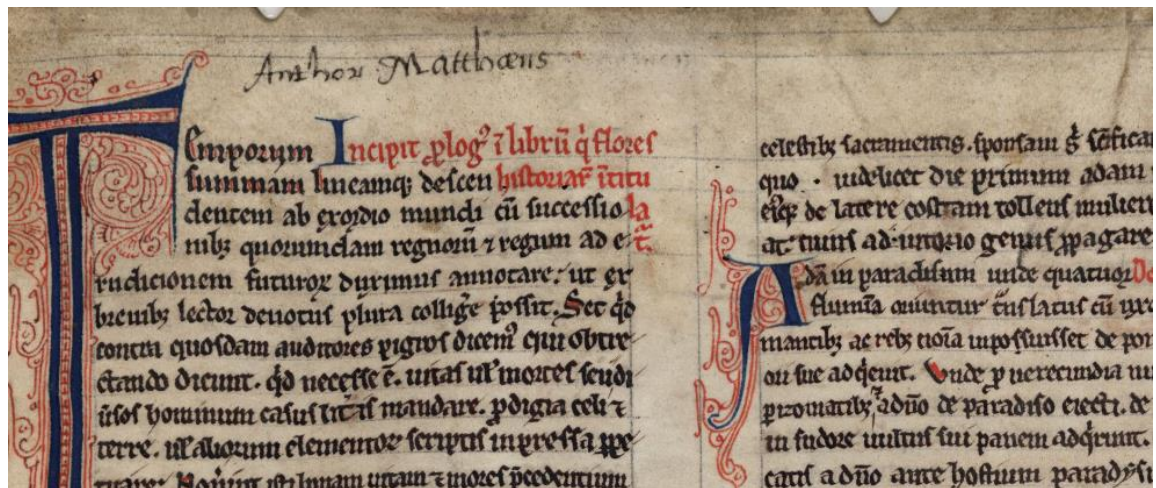 Author Matthæus
Temporum Incipit ꝓlogꝰ ī librū q̇ flores
summam lineamqꝫ descen historiaꝝ ītitu
dentem ab exordio mundi cū successio la
nibꝫ quorumdam regnorū ⁊ regum ad e t̄.
rudicionem futuroꝝ duximus annotare: ut ex
breuibꝫ lector deuotus plura colligẽ possit. Set qͥd
contra quosdam auditores pigros dicemꝰ qui obtre
ctando dicunt. qͥd necesse ē. uitas ul' mortes seu di
uīsos hominum casus lītīs mandare. ꝓdigia celi ⁊
terre. ul' aliorum elementoꝝ scriptis inpressa ꝑpe
tuare: Nouint isti bonam uitam ⁊ mores p̄cedentium
celestibꝫ sacramentis. sponsam
quo . uidelicet die primum adam
de latere costam tollens mulierē
ad iutorio genus ꝓpagare
Adā in paradisum unde quatuor De
flumīa oriuntur t̄nslatus cū uxo
mantibꝫ ac rebꝫ noīa inposuisset de pom
Unde p̱ uerecundia
a dn̄o de paradiso eiecti. de
in sudore uultus sui panem adqͥrunt.
a dn̄o ante hostium paradysi